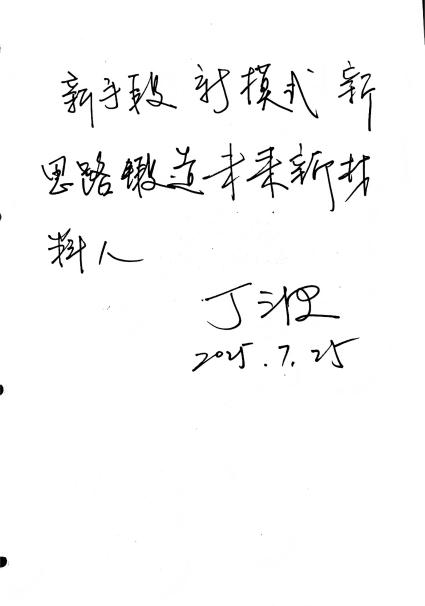 新手段 新模式 新
思路锻造未来新材
料人
丁
2025.7.25